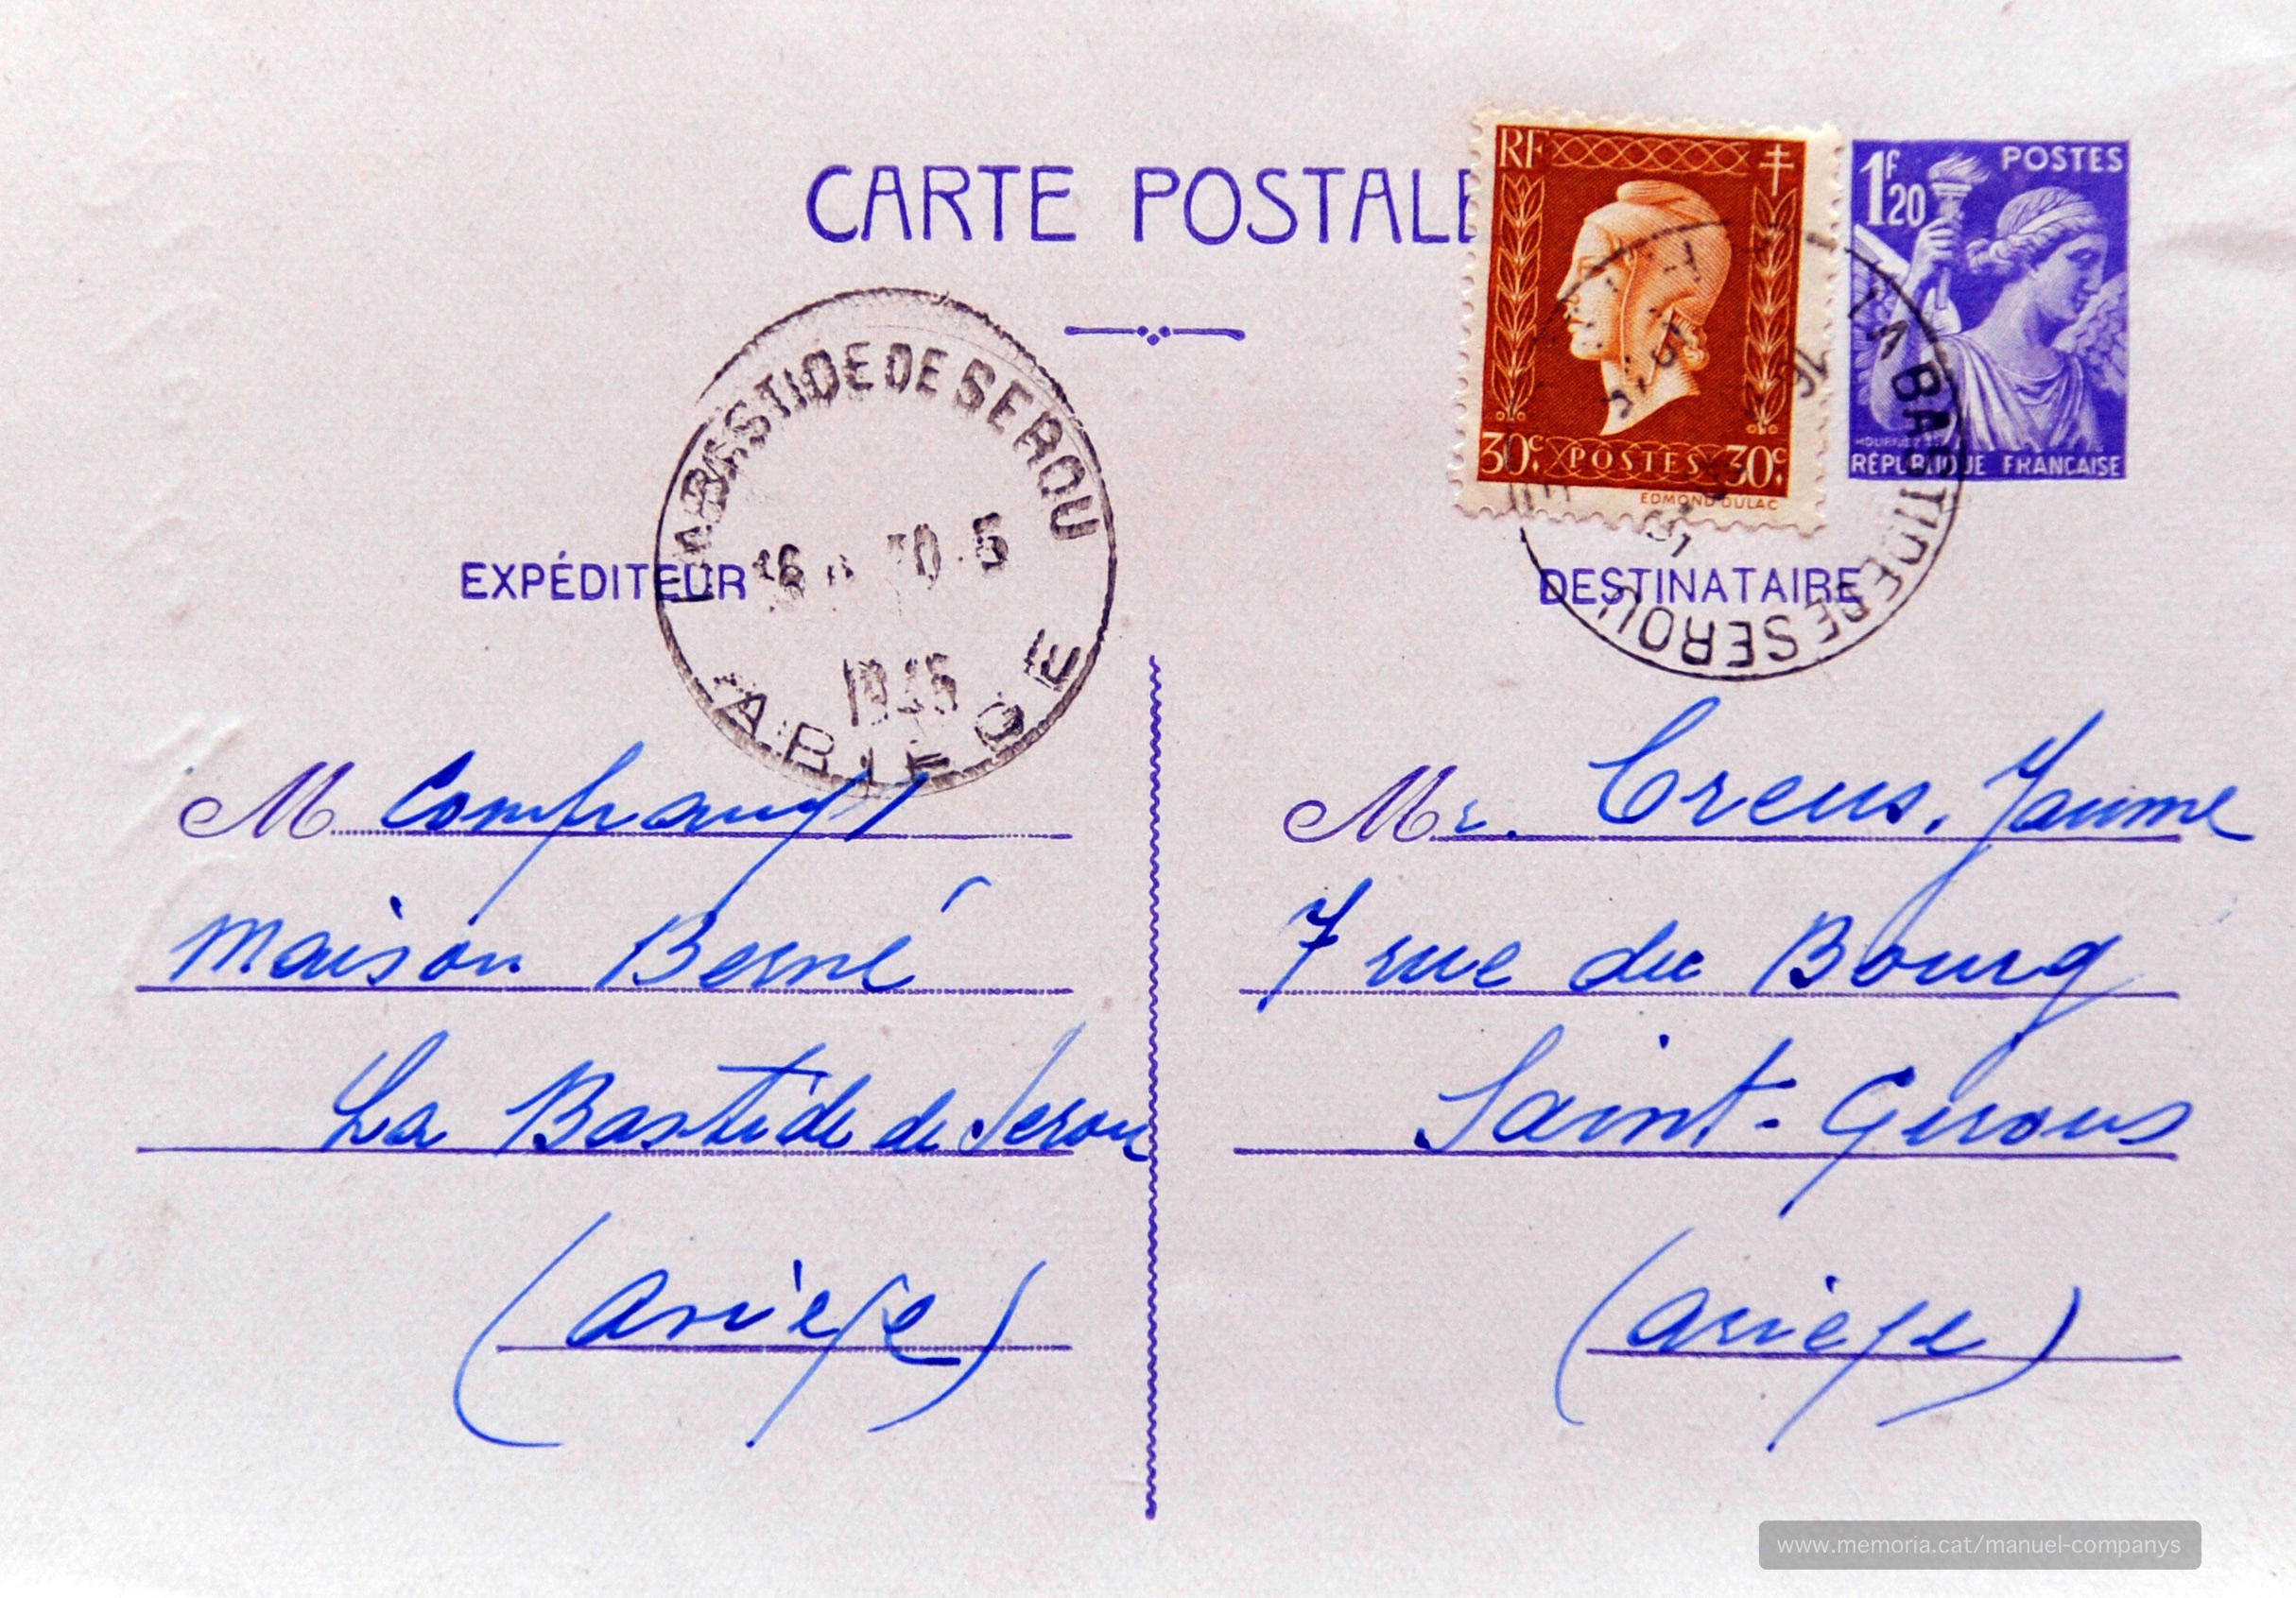 CARTE POSTALE
RF
30c. POSTES 30c.
EDMOND DULAC
1F20 POSTES
RÉPUBLIQUE FRANCAISE
LABASTIDE DE SEROU
16 10 5
1945
ARIEGE
LABASTIDE DE SEROU
EXPÉDITEUR
M Companys
Maison Berné
La Bastide de Serou
(Ariège)
DESTINATAIRE
Mr. Creus, Jaume
7 rue du Bourg
Saint-Girous
(Ariege)
www.memoria.cat/manuel-companys